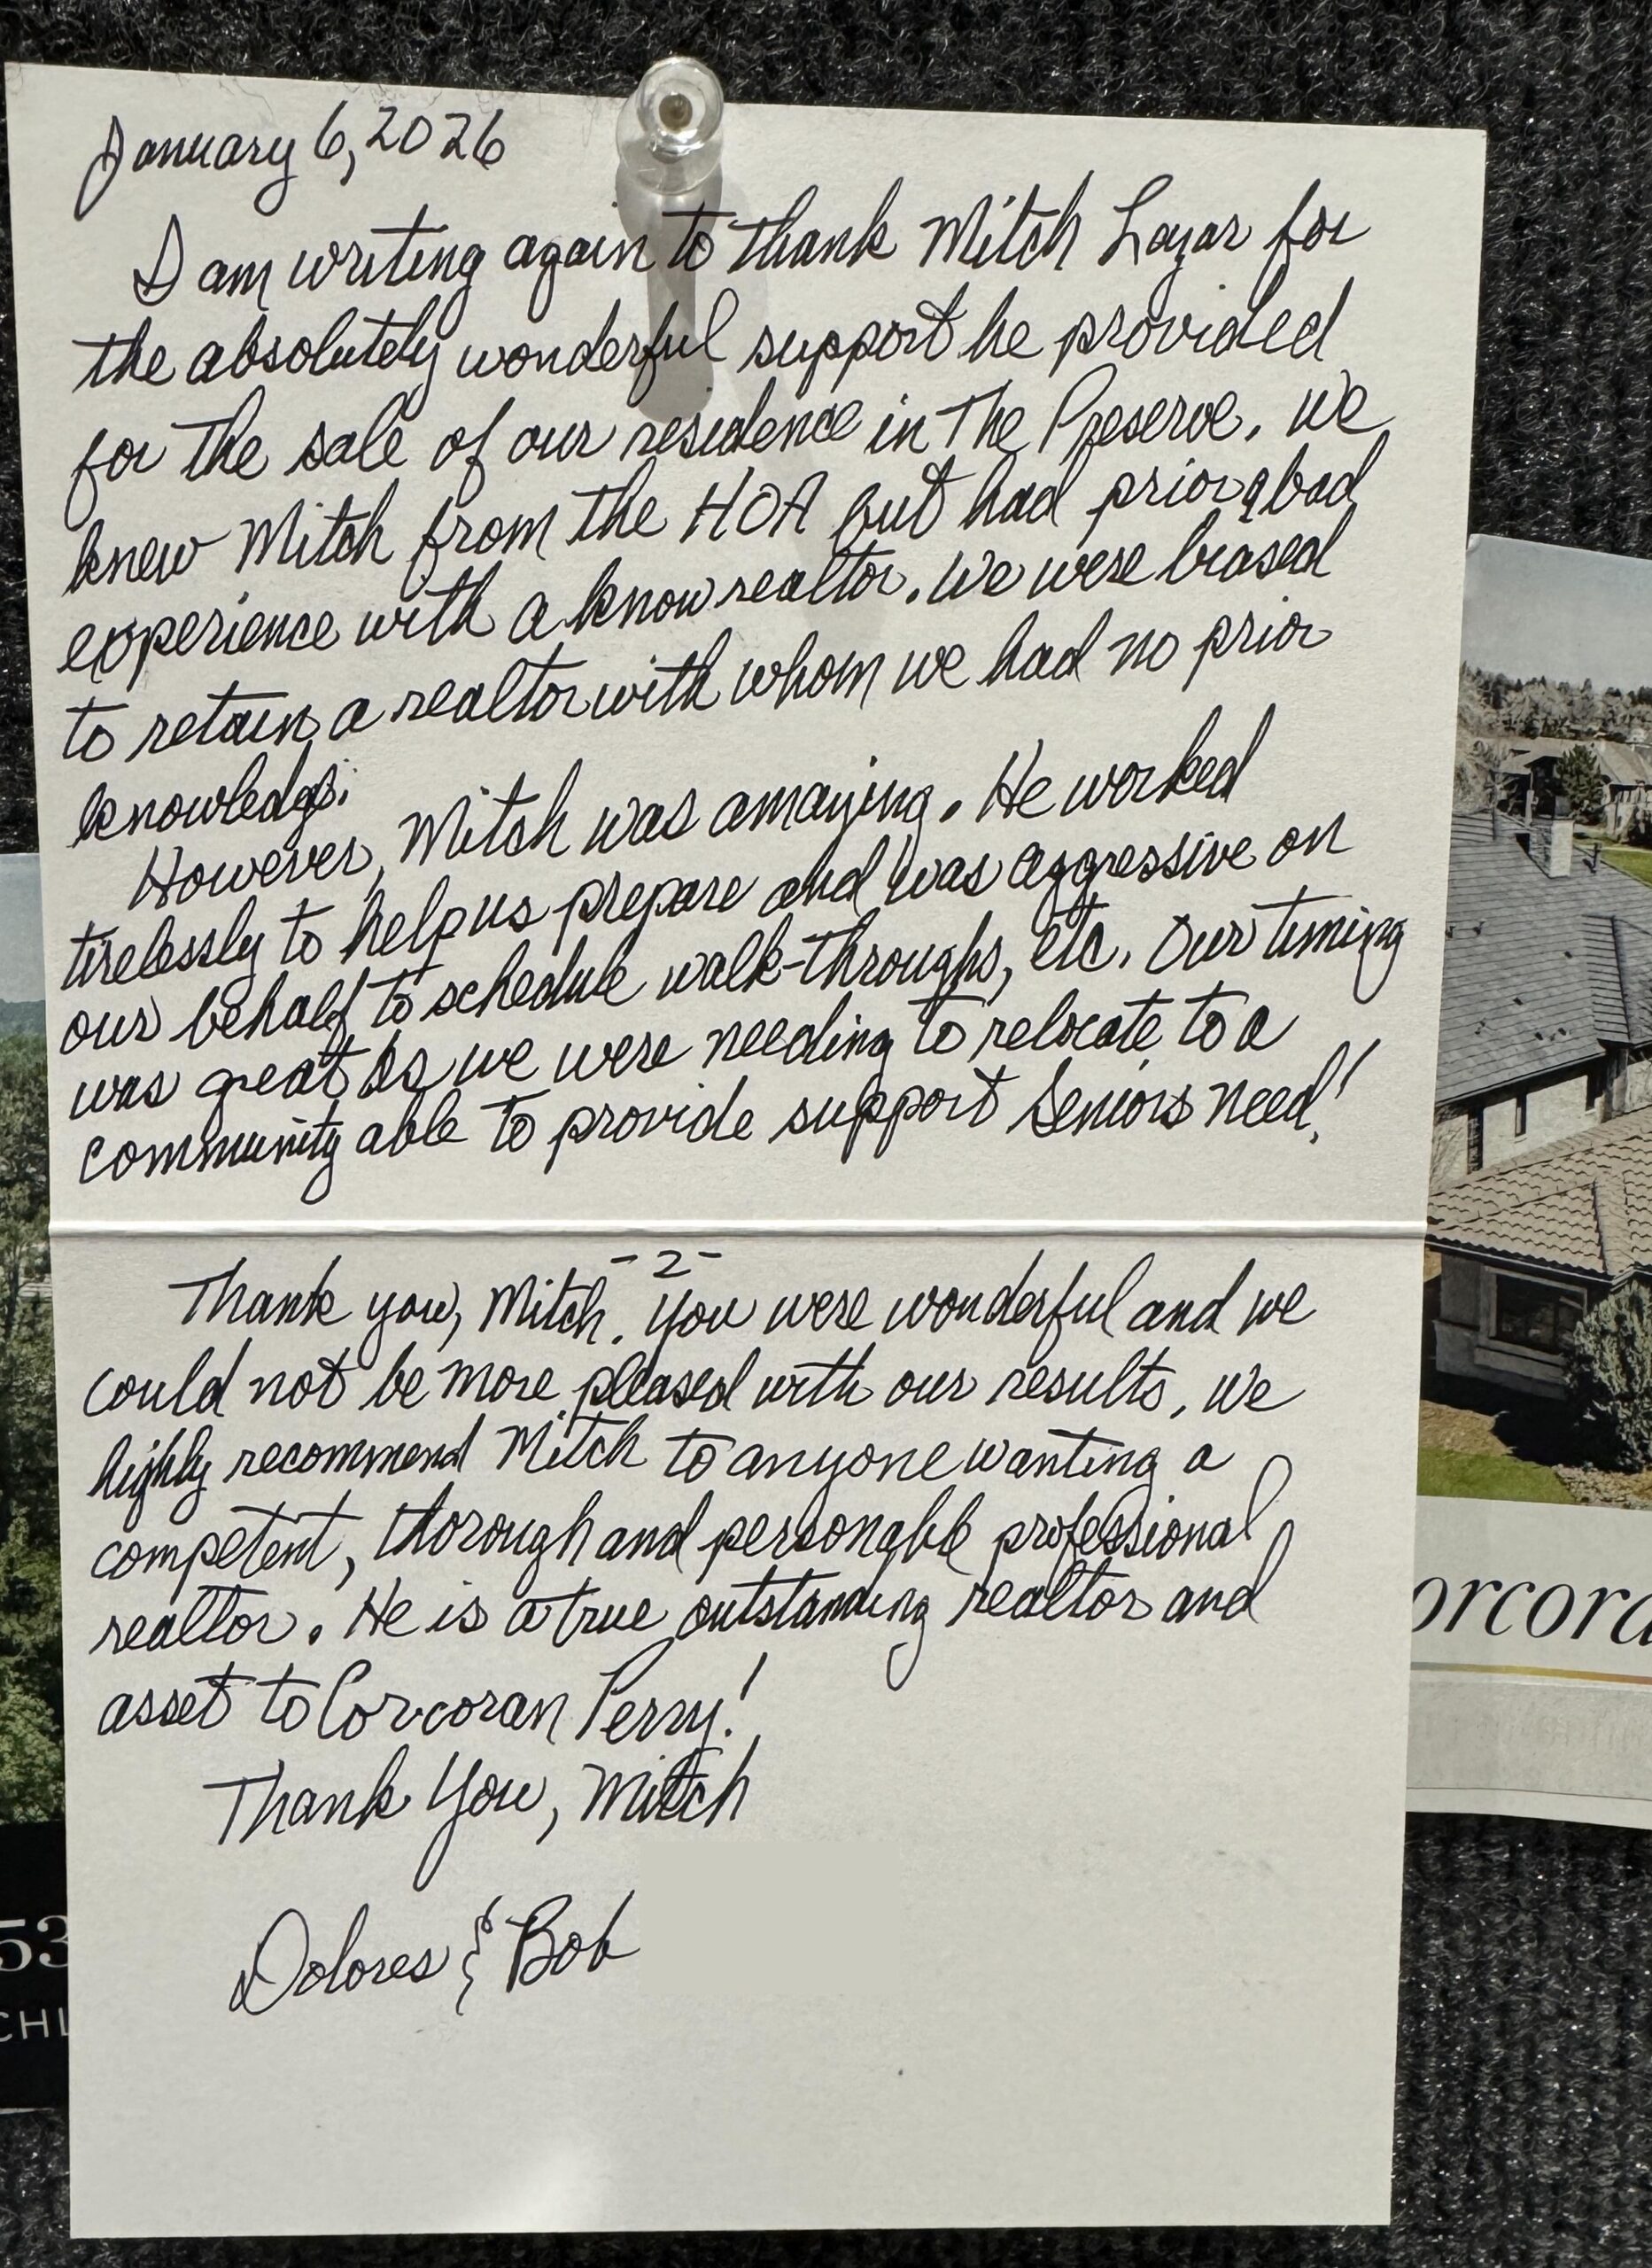 January 6, 2026
I am writing again to thank Mitch Lazar for
the absolutely wonderful support he provided
for the sale of our residence in The Preserve. We
knew Mitch from the HOA but had prior a bad
experience with a know realtor. We were biased
to retain a realtor with whom we had no prior
knowledge.
However, Mitch was amazing. He worked
tirelessly to help us prepare and was aggressive on
our behalf to schedule walk-throughs, etc. Our timing
was great as we were needing to relocate to a
community able to provide support Seniors need!
-2-
Thank you, Mitch. You were wonderful and we
could not be more pleased with our results. We
highly recommend Mitch to anyone wanting a
competent, thorough and personable professional
realtor. He is a true outstanding realtor and
asset to Corcoran Perry!
Thank You, Mitch
Dolores & Bob
orcora
53
CHL